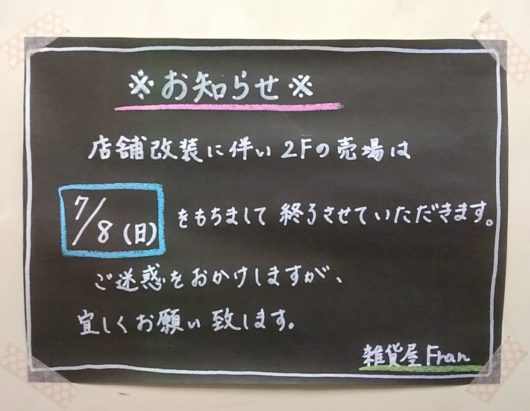 ※お知らせ※
店舗改装に伴い2Fの売場は
7/8(日)をもちまして終了させていただきます。
ご迷惑をおかけしますが、
宜しくお願い致します。
雑貨屋Fran